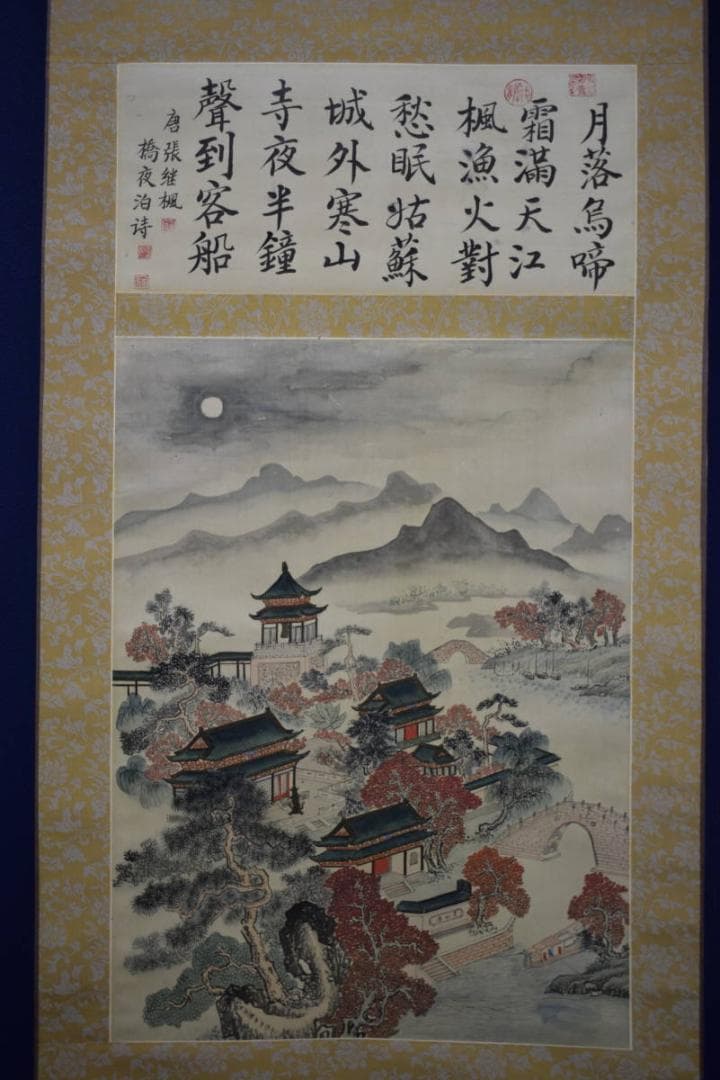 月落烏啼
霜滿天江
楓漁火對
愁眠姑蘇
城外寒山
寺夜半鐘
聲到客船
唐張继楓
橋夜泊诗